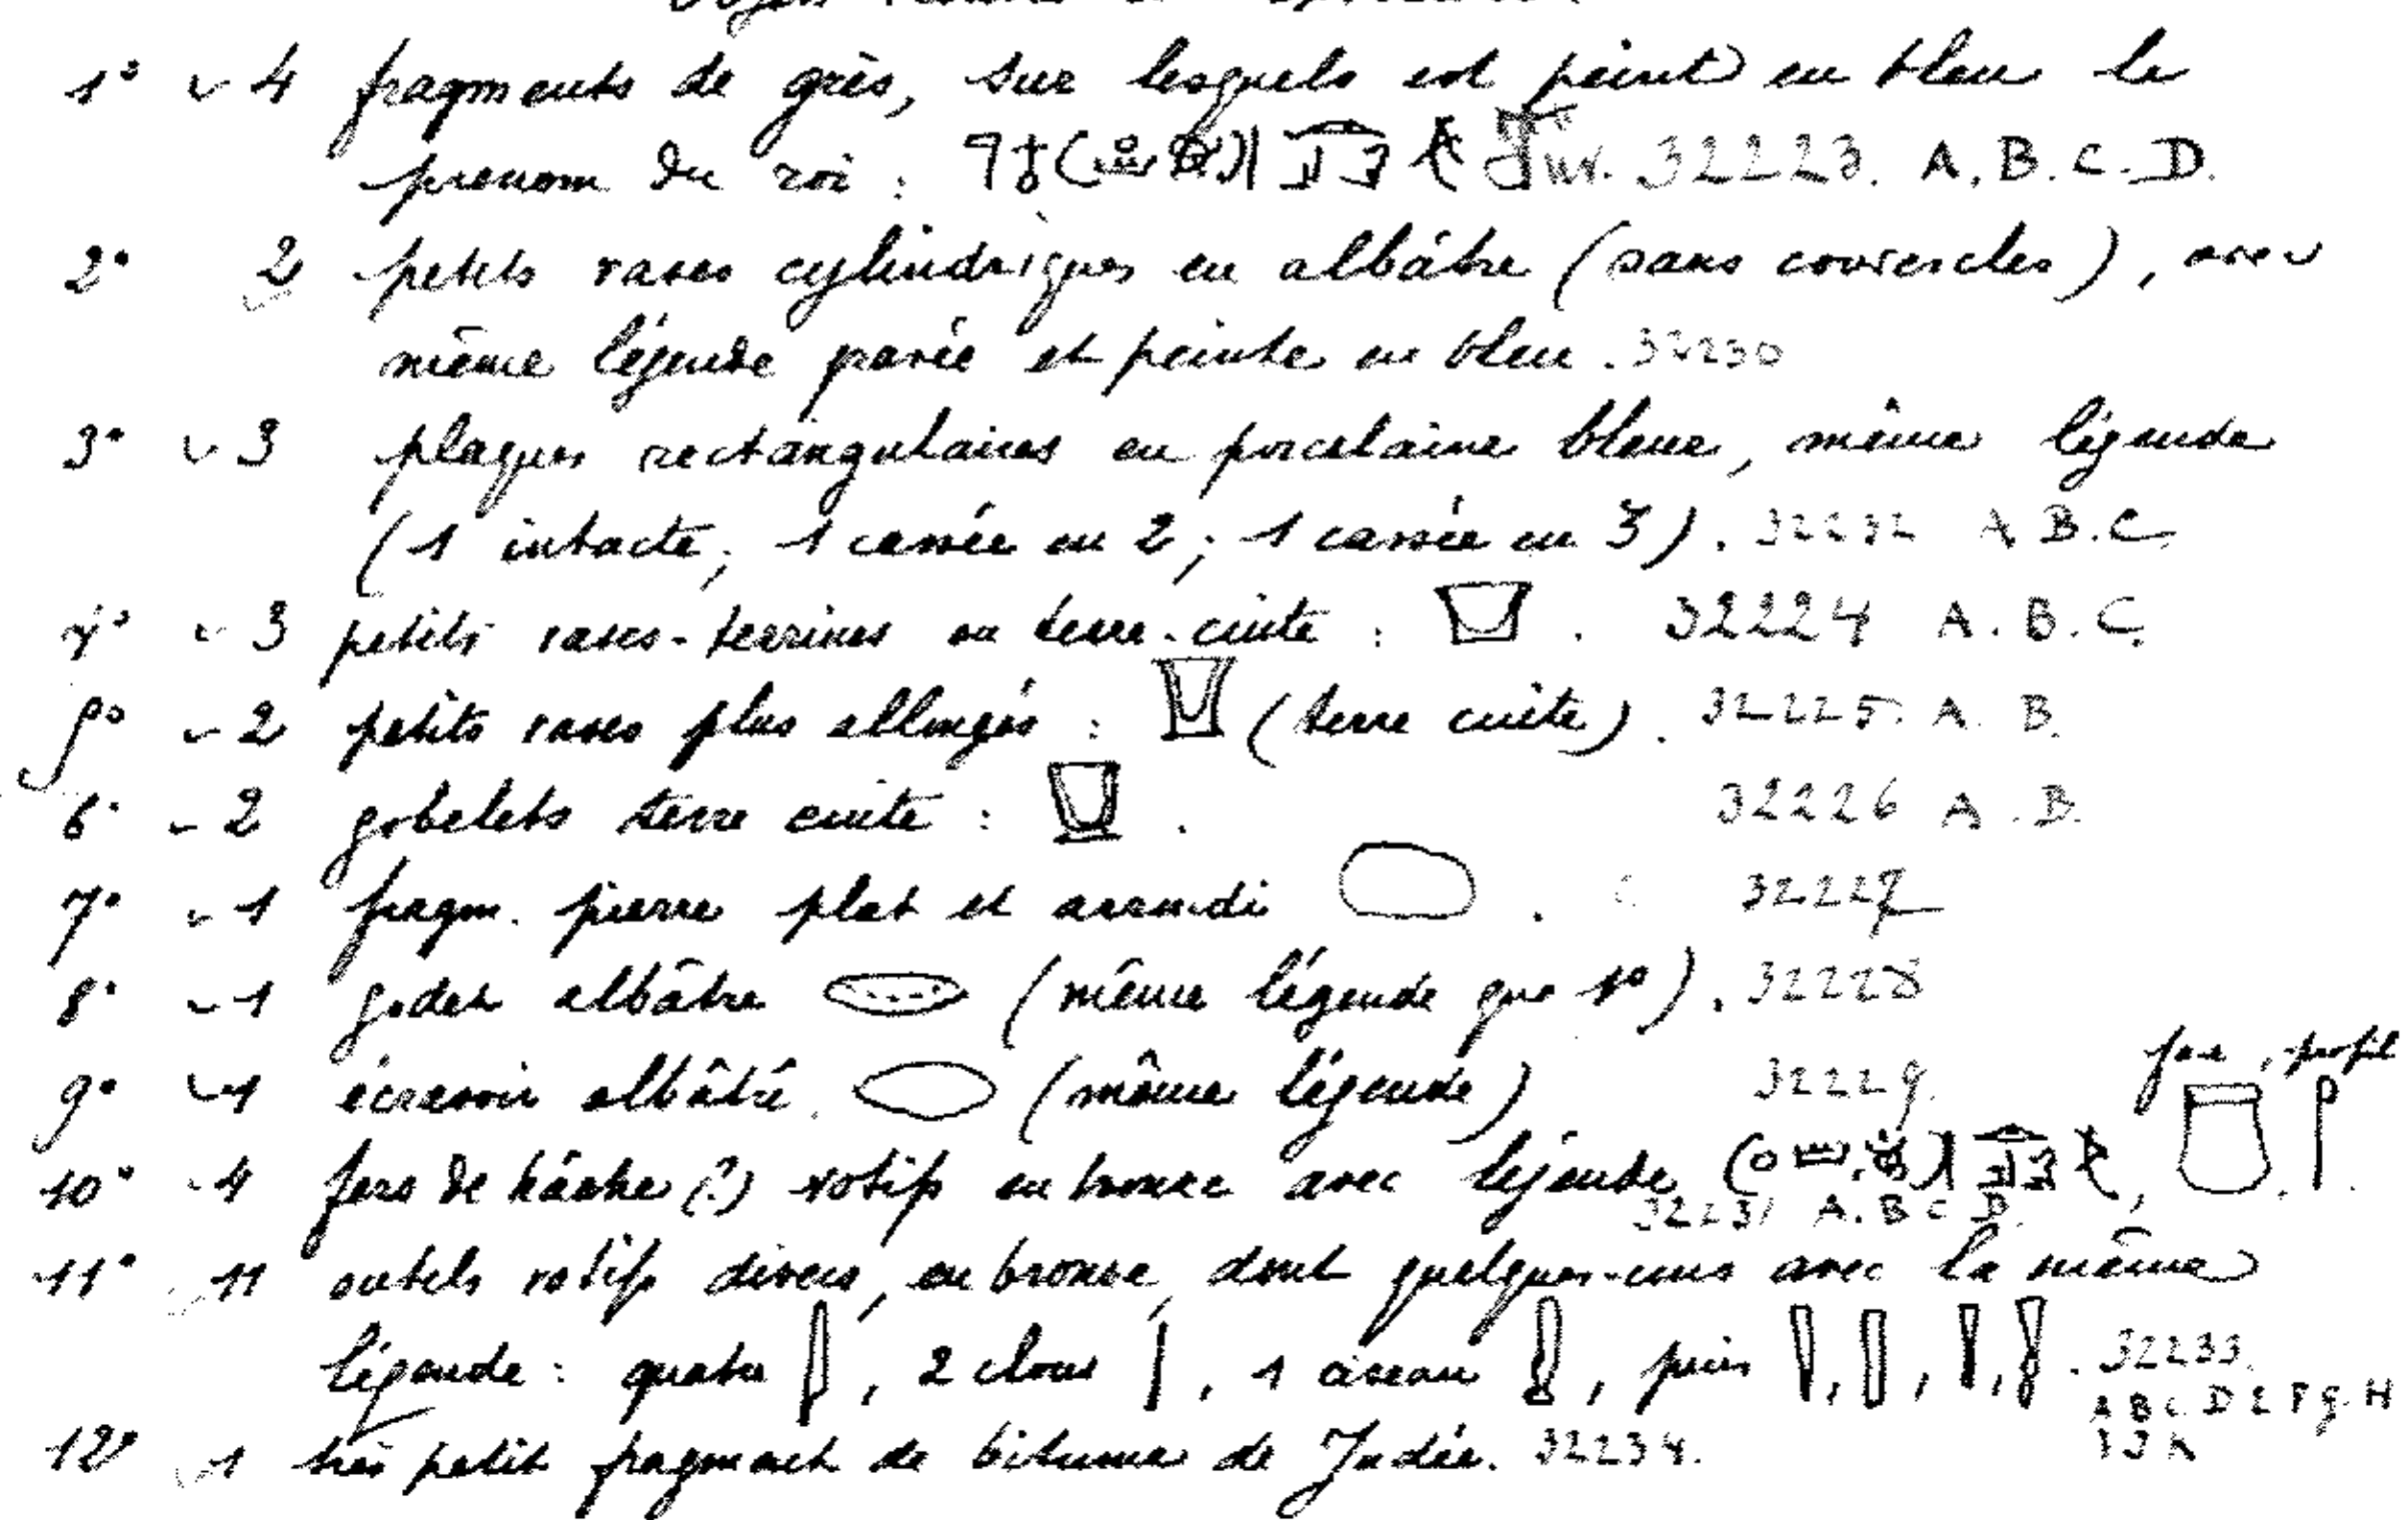 1° 4 fragments de grès, sur lesquels est peint en bleu le
prenom du roi : Inv. 32223. A. B. C. D.
2° 2 petits vases cylindriques en albâtre (sans couvercles), avec
même légende gravée et peinte en bleu. 32230
3° 3 plaques rectangulaires en porcelaine bleue, même légende
(1 intacte; 1 cassée en 2; 1 cassée en 3). 32232 A B. C.
4° 3 petits vases-terrines en terre-cuite : . 32224 A. B. C.
5° 2 petits vases plus allongés : (terre cuite). 32225. A. B.
6° 2 gobelets terre cuite : . 32226 A. B.
7° 1 fragm. pierre plat et arrondi . 32227
8° 1 godet albâtre (même légende que 1°). 32228
face, profil
9° 1 écrasoir albâtre. (même légende) 32229.
10° 4 fers de hâche (?) votifs en bronze avec légende , .
32231 A. B C D.
11° 11 outils votifs divers, en bronze, dont quelques-uns avec la même
légende : quatre , 2 clous , 1 ciseau , puis , , , . 32233.
A B C D E F G. H
I J K
12° 1 très petit fragment de bitume de Judée. 32234.